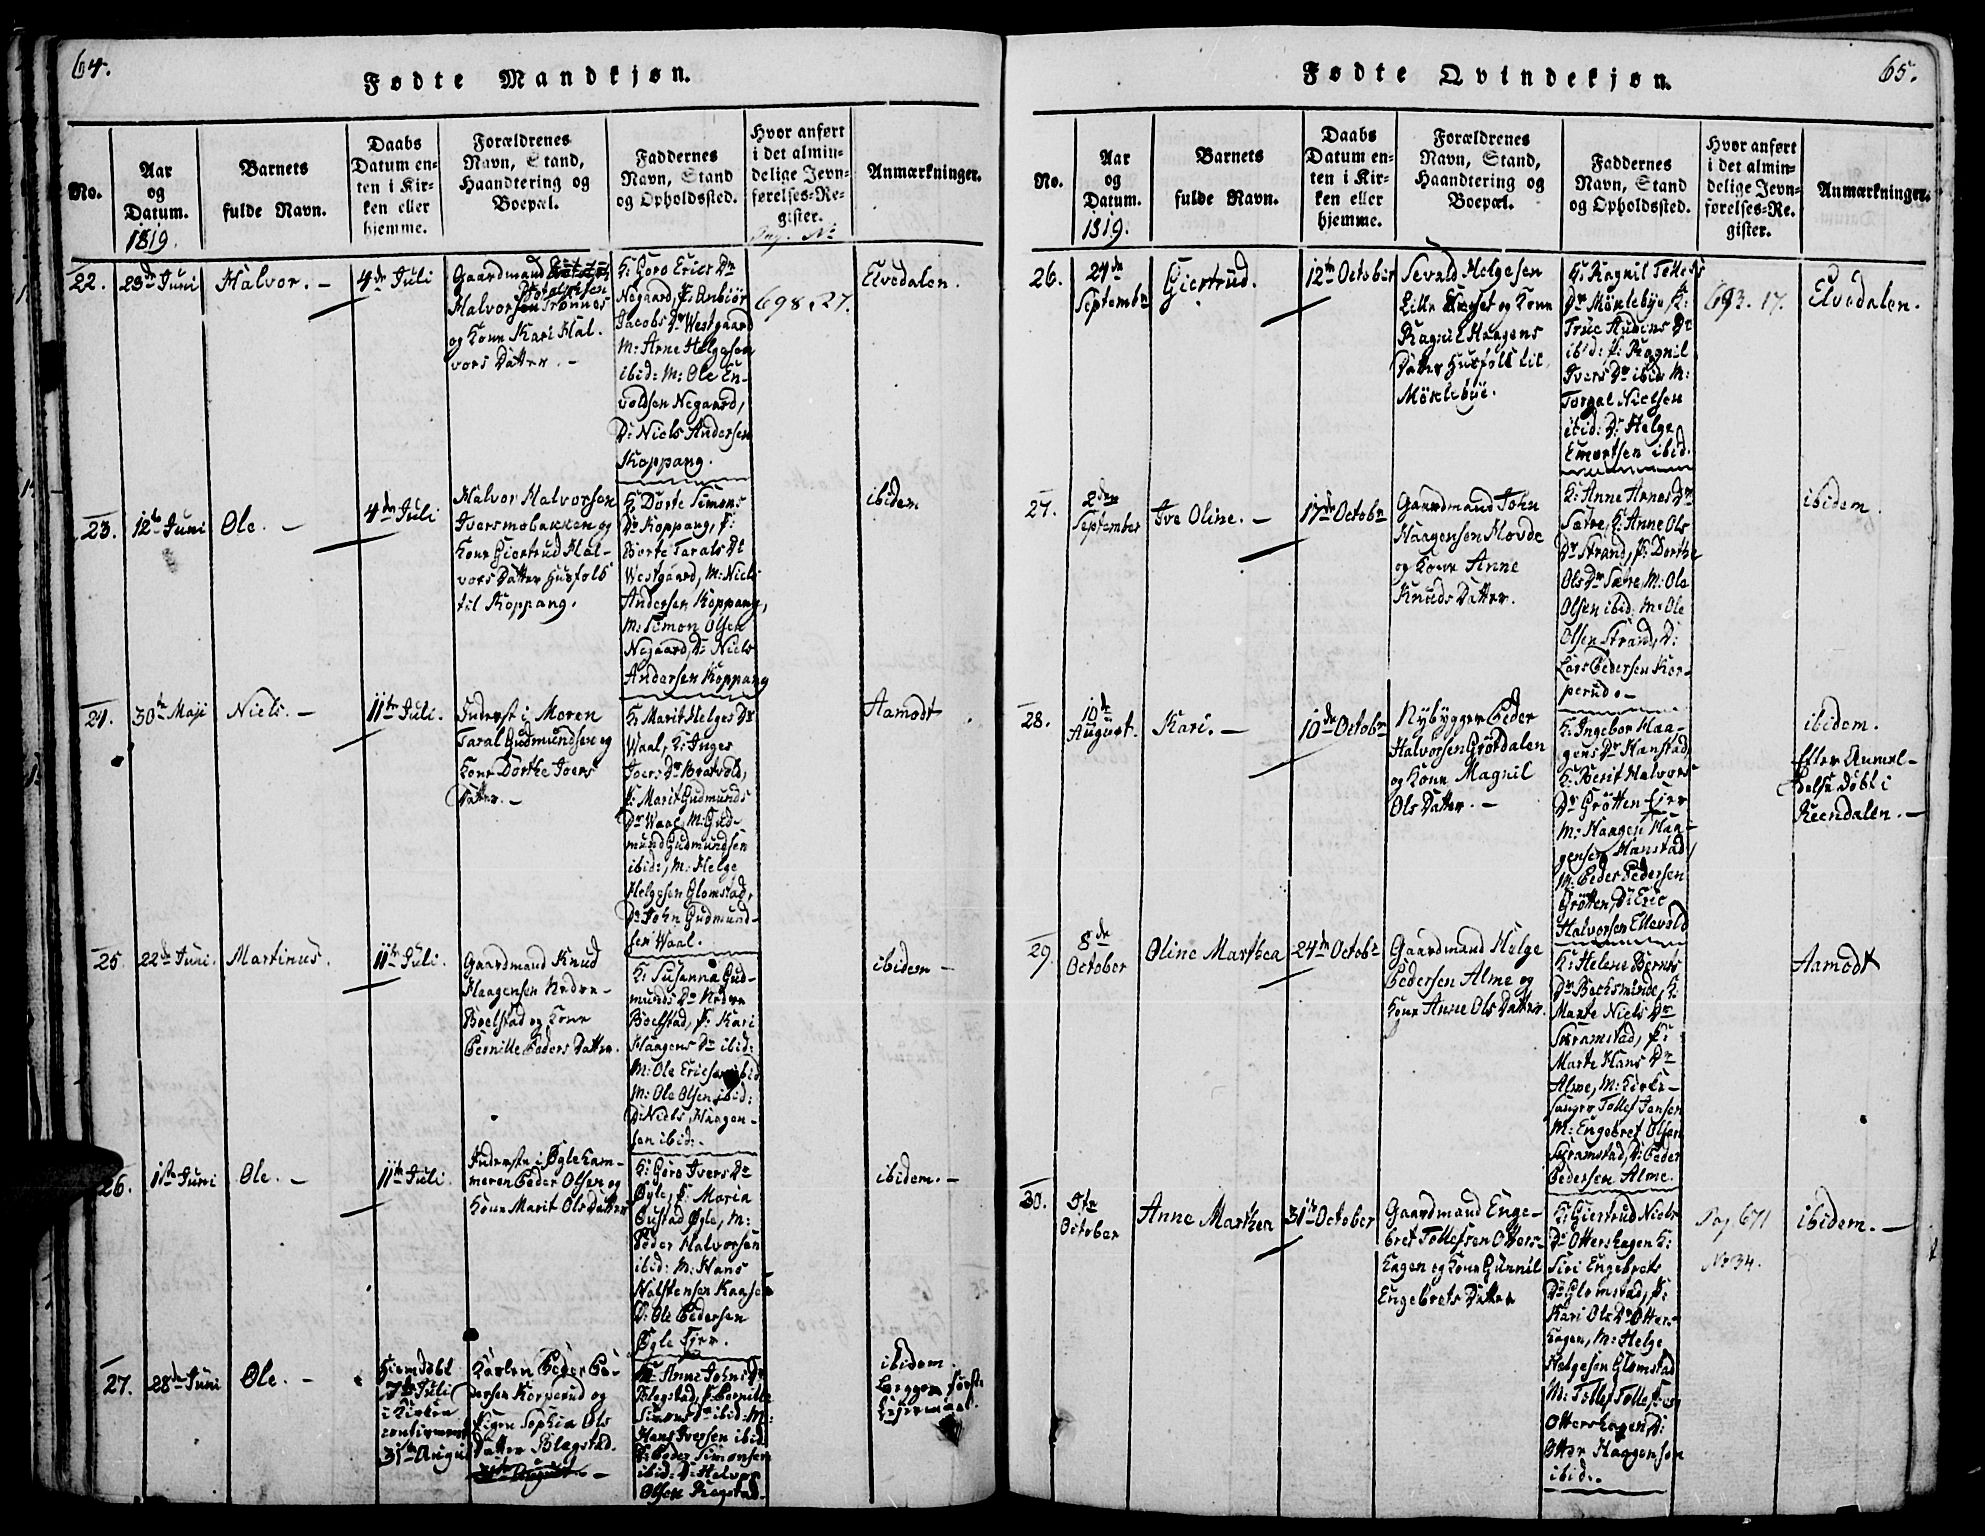 64.
Fødte Mandkjøn.
No.
Aar
og
Datum.
1819.
Barnets
fulde Navn.
Daabs
Datum en-
ten i Kir-
ken eller
hjemme.
Forældrenes
Navn, Stand,
Haandtering og
Boepæl.
Faddernes
Navn, Stand
og Opholdssted.
Hvor anført
i det almin-
delige Jevn-
førelses-Re-
gister.
Pag. No
Anmærkninger.
22.
23de Juni
Halvor. -
4de Juli
Gaardmand
Halvorsen Trønnes
og Kone Kari Hal-
vors Datter. -
K: Goro Erics Dr
Negaard, P: Anbiør
Jacobs Dr Westgaard
M: Arne Helgesen
ibid: M: Ole En-
voldsen Negaard,
D: Niels Andersen
Koppang.
698. 27.
Elvedalen.
23.
12te Juni
Ole. -
4de Juli
Halvor Halvorsen
Iversmobakken og
Kone Giertrud Hal-
vors Datter Husfolk
til Koppang.
K: Dorte Simons
Dr Koppang, P:
Borte Tarals Dr
Westgaard, M: Niels
Andersen Koppang,
M: Simon Olsen
Negaard, D: Niels
Andersen Koppang
ibidem
24.
30te Maji
Niels. -
11te Juli.
Inderst i Moren
Taral Gudmundsen og
Kone Dorthe Joers
Datter. -
K: Marit Helges Dr
Waal, K: Inger
Joers Dr Bratvold,
P: Marit Gudmunds
Dr Waal, M: Gud-
mund Gudmundsen
ibid:, M: Helge
Helgesen Glomstad,
D: John Gudmund-
sen Waal.
Aamodt
25.
22de Juni.
Martinus.
11te Juli.
Gaardmand Knud
Haagensen Nedre
Boelstad og Kone
Pernille Peders Datter.
K: Susanna Gud-
munds Dr Nedre
Boelstad, P: Kari
Haagens Dr ibid:
M: Ole Ericsen ibid
M: Ole Olsen ibid:
D: Niels Haagen-
sen ibid:-
ibidem -
26.
1ste Juni
Ole. -
11te Juli.
Inderste i Øglekam-
meren Peder Olsen og
Kone Marit Ols Datter
K: Goro Ivers Dr
Øgle, P: Maria
Øustad Øgle, M:
Peder Halvorsen
ibid: M: Hans
Halstensen Kaasen
D: Ole Pedersen
Øgle Eier.
ibidem. -
27.
28de Juni
Ole. -
Hiemdøbt
7de Juli
i Kirken
confirmeret
31te August
Karlen Peder Pe-
dersen Korperud og
Pigen Sophia Ols
Datter Blegstad.
K: Anne Johns Dr
Blegstad, P: Pernille
Simons Dr ibid: M:
Hans Iversen ibid.
M: Peder Simonsen
ibid: D: Halvor
Olsen Ragstad.
ibidem.
Begges første
Leiermaal.
65.
Fødte Qvindekjøn.
No.
Aar
og
Datum.
1819.
Barnets
fulde Navn.
Daabs
Datum en-
ten i Kir-
ken eller
hjemme.
Forældrenes
Navn, Stand,
Haandtering og
Boepæl.
Faddernes
Navn, Stand
og Opholdssted.
Hvor anført
i det almin-
delige Jevn-
førelses-Re-
gister.
Anmærkninger.
26.
24de
Septembr
Giertrud.
12te October
Sevald Helgesen
Lille og Kone
Ragnil Haagens
Datter Husfolk til
Möklebye.
K: Ragnil Tollefs
Dr Möklebye, K:
True Audens Dr
ibid: P: Ragnil
Ivers Dr ibid. M:
Torgal Nielsen
ibid: D: Helge
Emortsen ibid.
693. 17.
Elvedalen.
27.
2den
September
Ive Oline. -
17de Octobr
Gaardmand John
Haagensen Hovde
og Kone Anne
Knuds Datter.
K: Anne Arnes Dr
Sætre, K: Anne Ols
Dr Strand, P: Dorthe
Ols Dr Sætre, M: Ole
Olsen ibid. M: Ole
Olsen Strand, D:
Lars Pedersen Kor-
perud. -
ibidem.
28.
10de
August.
Kari. -
10de Octobr
Nybygger Peder
Halvorsen Grötdalen
og Kone Magnil
Ols Datter. -
K: Ingebor Haa-
gens Dr Hanstad,
K: Berit Halvors
Dr Grötten Eier
M: Haagen Haa-
gensen Hanstad,
M: Peder Pedersen
Grötten, D: Eric
Halvorsen Ellevold
ibidem.
Efter Anmel-
delse døbt i
Reendalen. -
29.
8de
October
Oline Marthea
24de Octobr
Gaardmand Helge
Pedersen Alme og
Kone Anne Ols Datter.
K: Helene Bernts
Dr Becksminde, K:
Marte Niels Dr
Skramstad, P:
Marte Hans Dr
Alme, M: Kirke-
sanger Tollef Jensen
M: Engebret Olsen
Skramstad, D: Peder
Pedersen Alme.
Aamodt
30.
October
Anne Marthea
31te October
Gaardmand Enge-
bret Tollefsen Otters-
hagen og Kone Gunnil
Engebrets Datter
K: Giertrud Niels
Dr Ottershagen K:
Siri Engebrets
Dr Glomstad, P:
Kari Ols Dr Otters-
hagen, M: Helge
Helgesen Glomstad
M: Tollef Tollefsen
Ottershagen D:
Otter Haagensen
ibid:.
Pag. 671
No 34.
ibidem. -